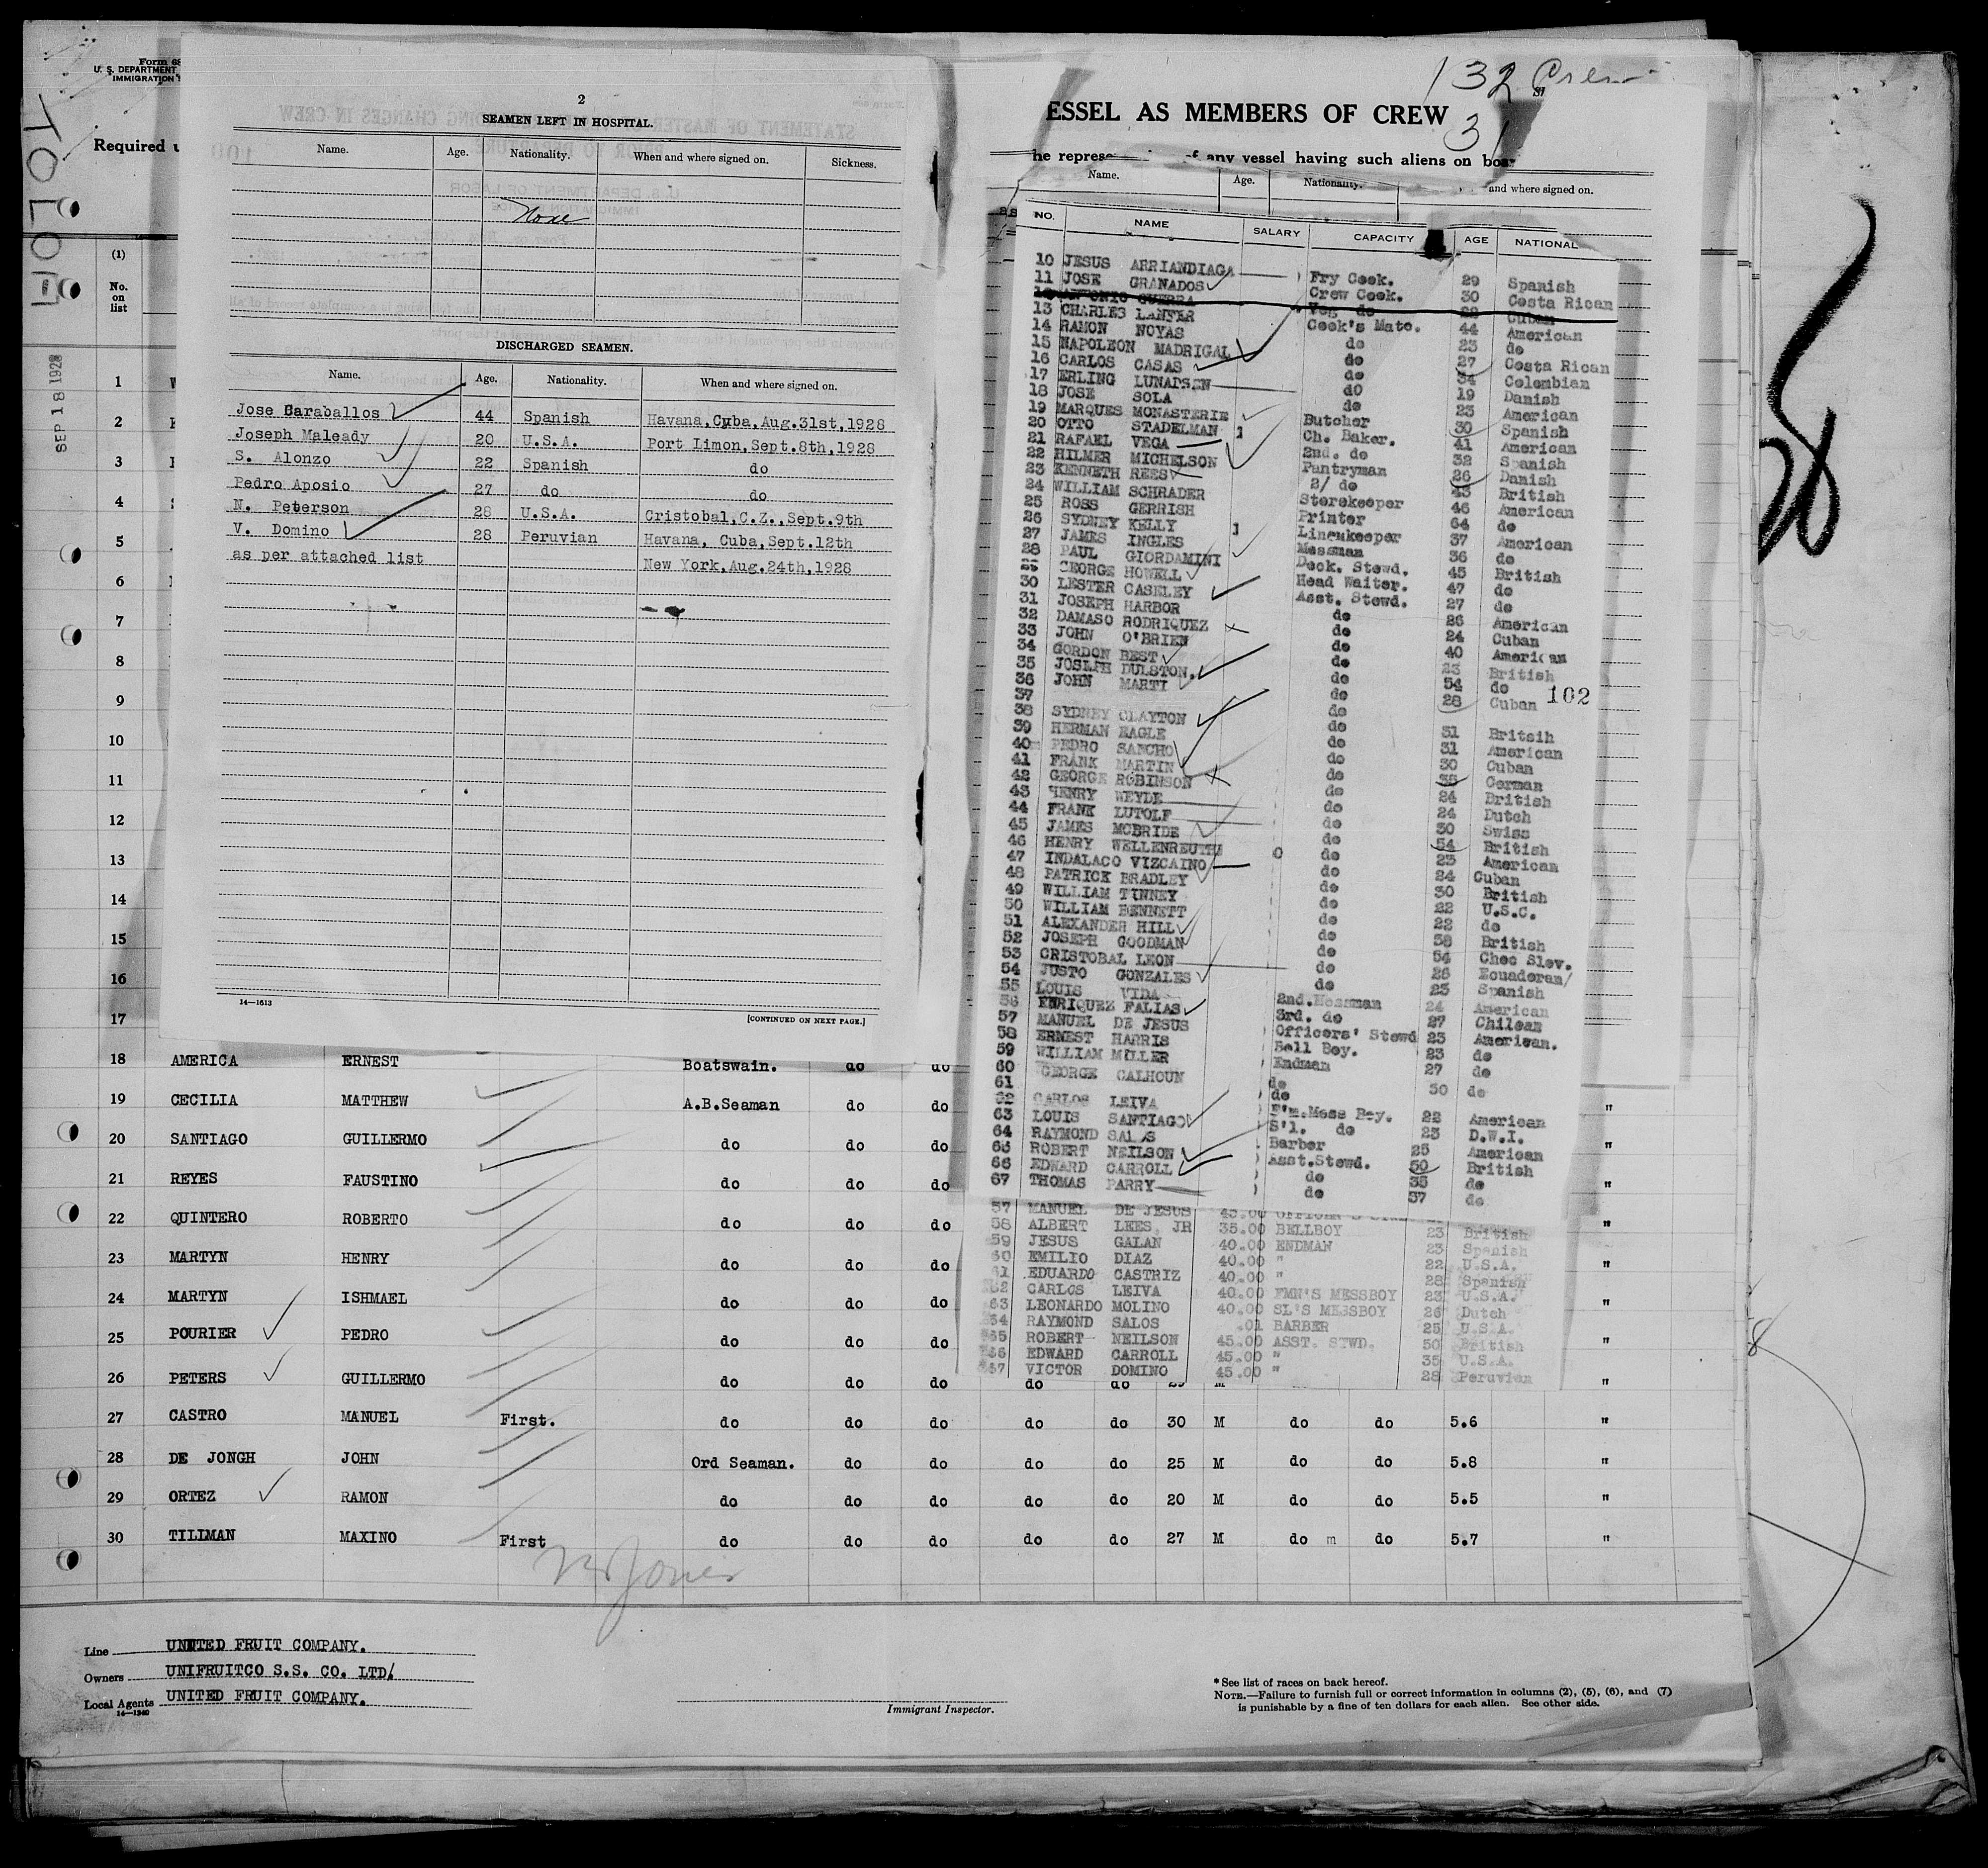 Form 68
U. S. DEPARTMENT
IMMIGRATION
Required
TOLOA
SEP 18 1928
2
SEAMEN LEFT IN HOSPITAL.
Name. Age. Nationality. When and where signed on. Sickness.
None
DISCHARGED SEAMEN.
Name. Age. Nationality. When and where signed on.
Jose Caraballos 44 Spanish Havana,Cuba.Aug.31st,1928
Joseph Maleady 20 U.S.A. Port Limon,Sept.8th,1928
S. Alonzo 22 Spanish do
Pedro Aposio 27 do do
N. Peterson 28 U.S.A. Cristobal,C.Z.,Sept.9th
V. Domino 28 Peruvian Havana, Cuba,Sept.12th
as per attached list New York,Aug.24th,1928
14—1613
[CONTINUED ON NEXT PAGE.]
132 Crew
31
ESSEL AS MEMBERS OF CREW
he represe of any vessel having such aliens on boar
Name. Age. Nationality. and where signed on.
NO. NAME SALARY CAPACITY AGE NATIONAL
10 JESUS ARRIANDIAGA Fry Cook. 29 Spanish
11 JOSE GRANADOS Crew Cook. 30 Costa Rican
12 ANTONIO GUERRA Veg do 22 Cuban
13 CHARLES LANFER Cook's Mate. 44 American
14 RAMON NOYAS do 23 do
15 NAPOLEON MADRIGAL do 27 Costa Rican
16 CARLOS CASAS do 34 Colombian
17 ERLING LUNAPSEN do 19 Danish
18 JOSE SOLA do 23 American
19 MARQUES MONASTERIE Butcher 30 Spanish
20 OTTO STADELMAN Ch. Baker. 41 American
21 RAFAEL VEGA 2nd. do 32 Spanish
22 HILMER MICHELSON Pantryman 26 Danish
23 KENNETH REES 2/ do 43 British
24 WILLIAM SCHRADER Storekeeper 46 American
25 ROSS GERRISH Printer 64 do
26 SYDNEY KELLY Linenkeeper 37 American
27 JAMES INGLES Messman 36 do
28 PAUL GIORDAMINI Deck. Stewd. 45 British
29 GEORGE HOWELL Head Waiter. 47 do
30 LESTER CASELEY Asst. Stewd. 27 do
31 JOSEPH HARBOR do 26 American
32 DAMASO RODRIQUEZ do 24 Cuban
33 JOHN O'BRIEN do 40 American
34 GORDON BEST do 23 British
35 JOSEPH DULSTON. do 54 do
36 JOHN MARTI do 28 Cuban
102
37 do
38 SYDNEY CLAYTON do 31 Britsih
39 HERMAN EAGLE do 31 American
40 PEDRO SANCHO do 30 Cuban
41 FRANK MARTIN do 35 German
42 GEORGE ROBINSON do 24 British
43 HENRY WEYDE do 24 Dutch
44 FRANK LUTOLF do 30 Swiss
45 JAMES MCBRIDE do 54 British
46 HENRY WELLENREUTH do 23 American
47 INDALACO VIZCAINO do 24 Cuban
48 PATRICK BRADLEY do 30 British
49 WILLIAM TINNEY do 22 U.S.C.
50 WILLIAM BENNETT do 22 do
51 ALEXANDER HILL do 58 British
52 JOSEPH GOODMAN do 54 Chec Slev.
53 CRISTOBAL LEON do 26 Ecuaderan/
54 JUSTO GONZALES do 25 Spanish
55 LOUIS VIDA 2nd.Messman 24 American
56 ENRIQUEZ FALIAS 3rd. do 27 Chilean
57 MANUEL DE JESUS Officers' Stewd 23 American.
58 ERNEST HARRIS Bell Boy. 23 do
59 WILLIAM MILLER Endman 27 do
60 GEORGE CALHOUN do 30 do
61 do
62 CARLOS LEIVA F'm.Mess Boy. 22 American
63 LOUIS SANTIAGO S'l. do 23 D.W.I.
64 RAYMOND SALAS Barber 25 American
65 ROBERT NEILSON Asst.Stewd. 50 British
66 EDWARD CARROLL do 35 do
67 THOMAS PARRY do 37 do
57 MANUEL DE JESUS 45.00
58 ALBERT LEES, JR 35.00 BELLBOY 23 British
59 JESUS GALAN 40.00 ENDMAN 23 Spanish
60 EMILIO DIAZ 40.00 " 22 U.S.A.
61 EDUARDO CASTRIZ 40.00 " 28 Spanish
62 CARLOS LEIVA 40.00 FMN'S MESSBOY 23 U.S.A.
63 LEONARDO MOLINO 40.00 SL'S MESSBOY 26 Dutch
64 RAYMOND SALOS .01 BARBER 25 U.S.A.
65 ROBERT NEILSON 45.00 ASST. STWD. 50 British
66 EDWARD CARROLL 45.00 " 35 U.S.A.
67 VICTOR DOMINO 45.00 " 28 Peruvian
(1)
No.
on
list
1
2
3
4
5
6
7
8
9
10
11
12
13
14
15
16
17
18 AMERICA ERNEST Boatswain. do do
19 CECILIA MATTHEW A.B.Seaman do do "
20 SANTIAGO GUILLERMO do do do "
21 REYES FAUSTINO do do do "
22 QUINTERO ROBERTO do do do "
23 MARTYN HENRY do do do "
24 MARTYN ISHMAEL do do do "
25 POURIER PEDRO do do do "
26 PETERS GUILLERMO do do do do do M "
27 CASTRO MANUEL First. do do do do do 30 M do do 5.6 "
28 DE JONGH JOHN Ord Seaman. do do do do 25 M do do 5.8 "
29 ORTEZ RAMON do do do do do 20 M do do 5.5 "
30 TILLMAN MAXINO First do do do do do 27 M do m do 5.7 "
Jones
Line UNITED FRUIT COMPANY.
Owners UNIFRUITCO S.S. CO. LTD.
Local Agents UNITED FRUIT COMPANY.
14—1240
Immigrant Inspector.
* See list of races on back hereof.
NOTE.—Failure to furnish full or correct information in columns (2), (5), (6), and (7)
is punishable by a fine of ten dollars for each alien. See other side.